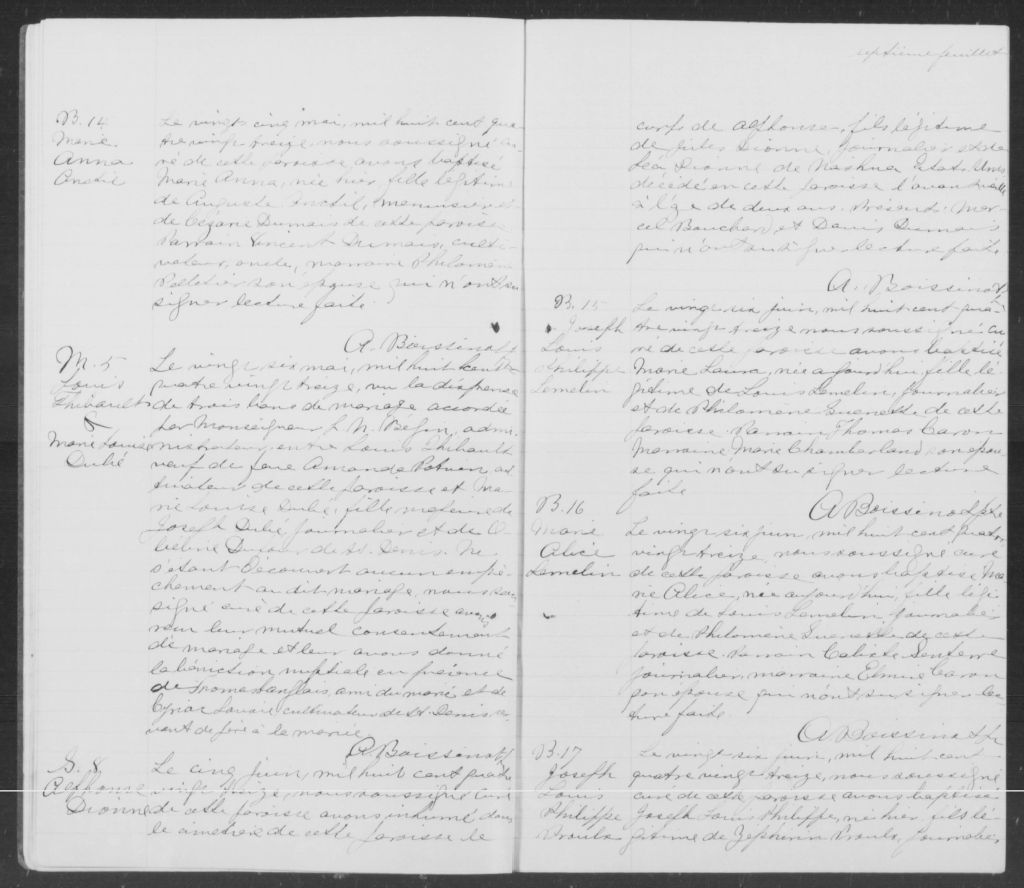 B. 14
Marie
Anna
Anctil
Le vingt cinq mai, mil huit cent qua
tre vingt treize, nous soussigné cu
ré de cette paroisse avons baptisé
Marie Anna, née hier, fille légitime
de Auguste Anctil, menuisier et
de Cézarie Dumais de cette paroisse
Parrain Vincent Dumais, culti-
vateur, oncle, marraine Philomène
Pelletier son épouse qui n'ont su
signer lecture faite.
A. Boissinot Ptre
M. 5
Louis
Thibault
&
Marie Louise
Dubé
Le vingt six mai, mil huit cent
quatre vingt treize, vu la dispense
de trois bans de mariage accordée
par Monseigneur L. N. Bégin, admi-
nistrateur, entre Louis Thibault
veuf de feue Amanda Potvin, cul
tivateur de cette paroisse et Ma-
rie Louise Dubé, fille majeure de
Joseph Dubé journalier et de
Dufour de St. Denis. Ne
s'étant découvert aucun empê-
chement au dit mariage, nous sous
signé curé de cette paroisse avons
reçu leur mutuel consentement
de mariage et leur avons donné
la bénédiction nuptiale en présence
de Thomas Langlais, ami du marié et de
Cyriac Lavoie cultivateur de St. Denis ser-
vant de père à la mariée
A. Boissinot Ptre
S. 8
Alphonse
Dionne
Le cinq juin, mil huit cent quatre
vingt treize, nous soussigné curé
de cette paroisse avons inhumé dans
le cimetière de cette paroisse le
septième feuillet
corps de Alphonse, fils légitime
de Jules Dionne, journalier et de
Léa Dionne de Nashua Etats Unis
décédé en cette paroisse l'avant veille
à l'âge de deux ans. Présents: Mar-
cel Bouchard et Denis Dumais
qui n'ont su signer lecture faite.
A. Boissinot Ptre
B. 15
Joseph
Louis
Philippe
Lemelin
Le vingt six juin, mil huit cent qua
tre vingt treize nous soussigné cu
ré de cette paroisse avons baptisé
Marie Laura, née aujourd'hui, fille lé
gitime de Louis Lemelin, journalier
et de Philomène Guenette de cette
paroisse. Parrain Thomas Caron
Marraine Marie Chamberland son épou-
se qui n'ont su signer lecture
faite
A Boissinot ptre
B. 16
Marie
Alice
Lemelin
Le vingt six juin, mil huit cent quatre
vingt treize, nous soussigné curé
de cette paroisse avons baptisé Ma-
rie Alice, née aujourd'hui, fille légi-
time de Louis Lemelin, journalier
et de Philomène Guenette de cette
paroisse. Parrain Calixte Senterre
journalier, marraine Elmire Caron
son épouse qui n'ont su signer lec
ture faite.
A Boissinot ptre
B. 17
Joseph
Louis
Philippe
Proulx
Le vingt six juin, mil huit cent
quatre vingt treize, nous soussigné
curé de cette paroisse avons baptisé
Joseph Louis Philippe, né hier, fils lé-
gitime de Zéphirin Proulx, journalier,